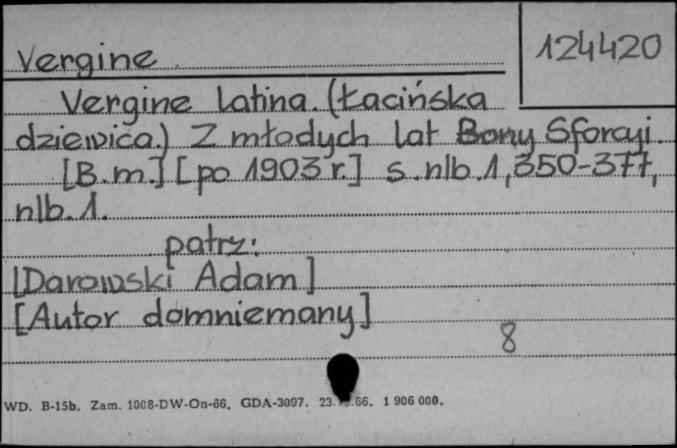 Vergine
124420
Vergine Latina. (Łacińska
dziewica.) Z młodych lat Bony Sforcyi.
[B.m.] [po 1903 r.] s. nlb. 1, 350-377,
nlb. 1.
patrz:
[Darowski Adam]
[Autor domniemany]
8
WD. B-15b. Zam. 1008-DW-On-66. GDA-3097. 66. 1 906 000.